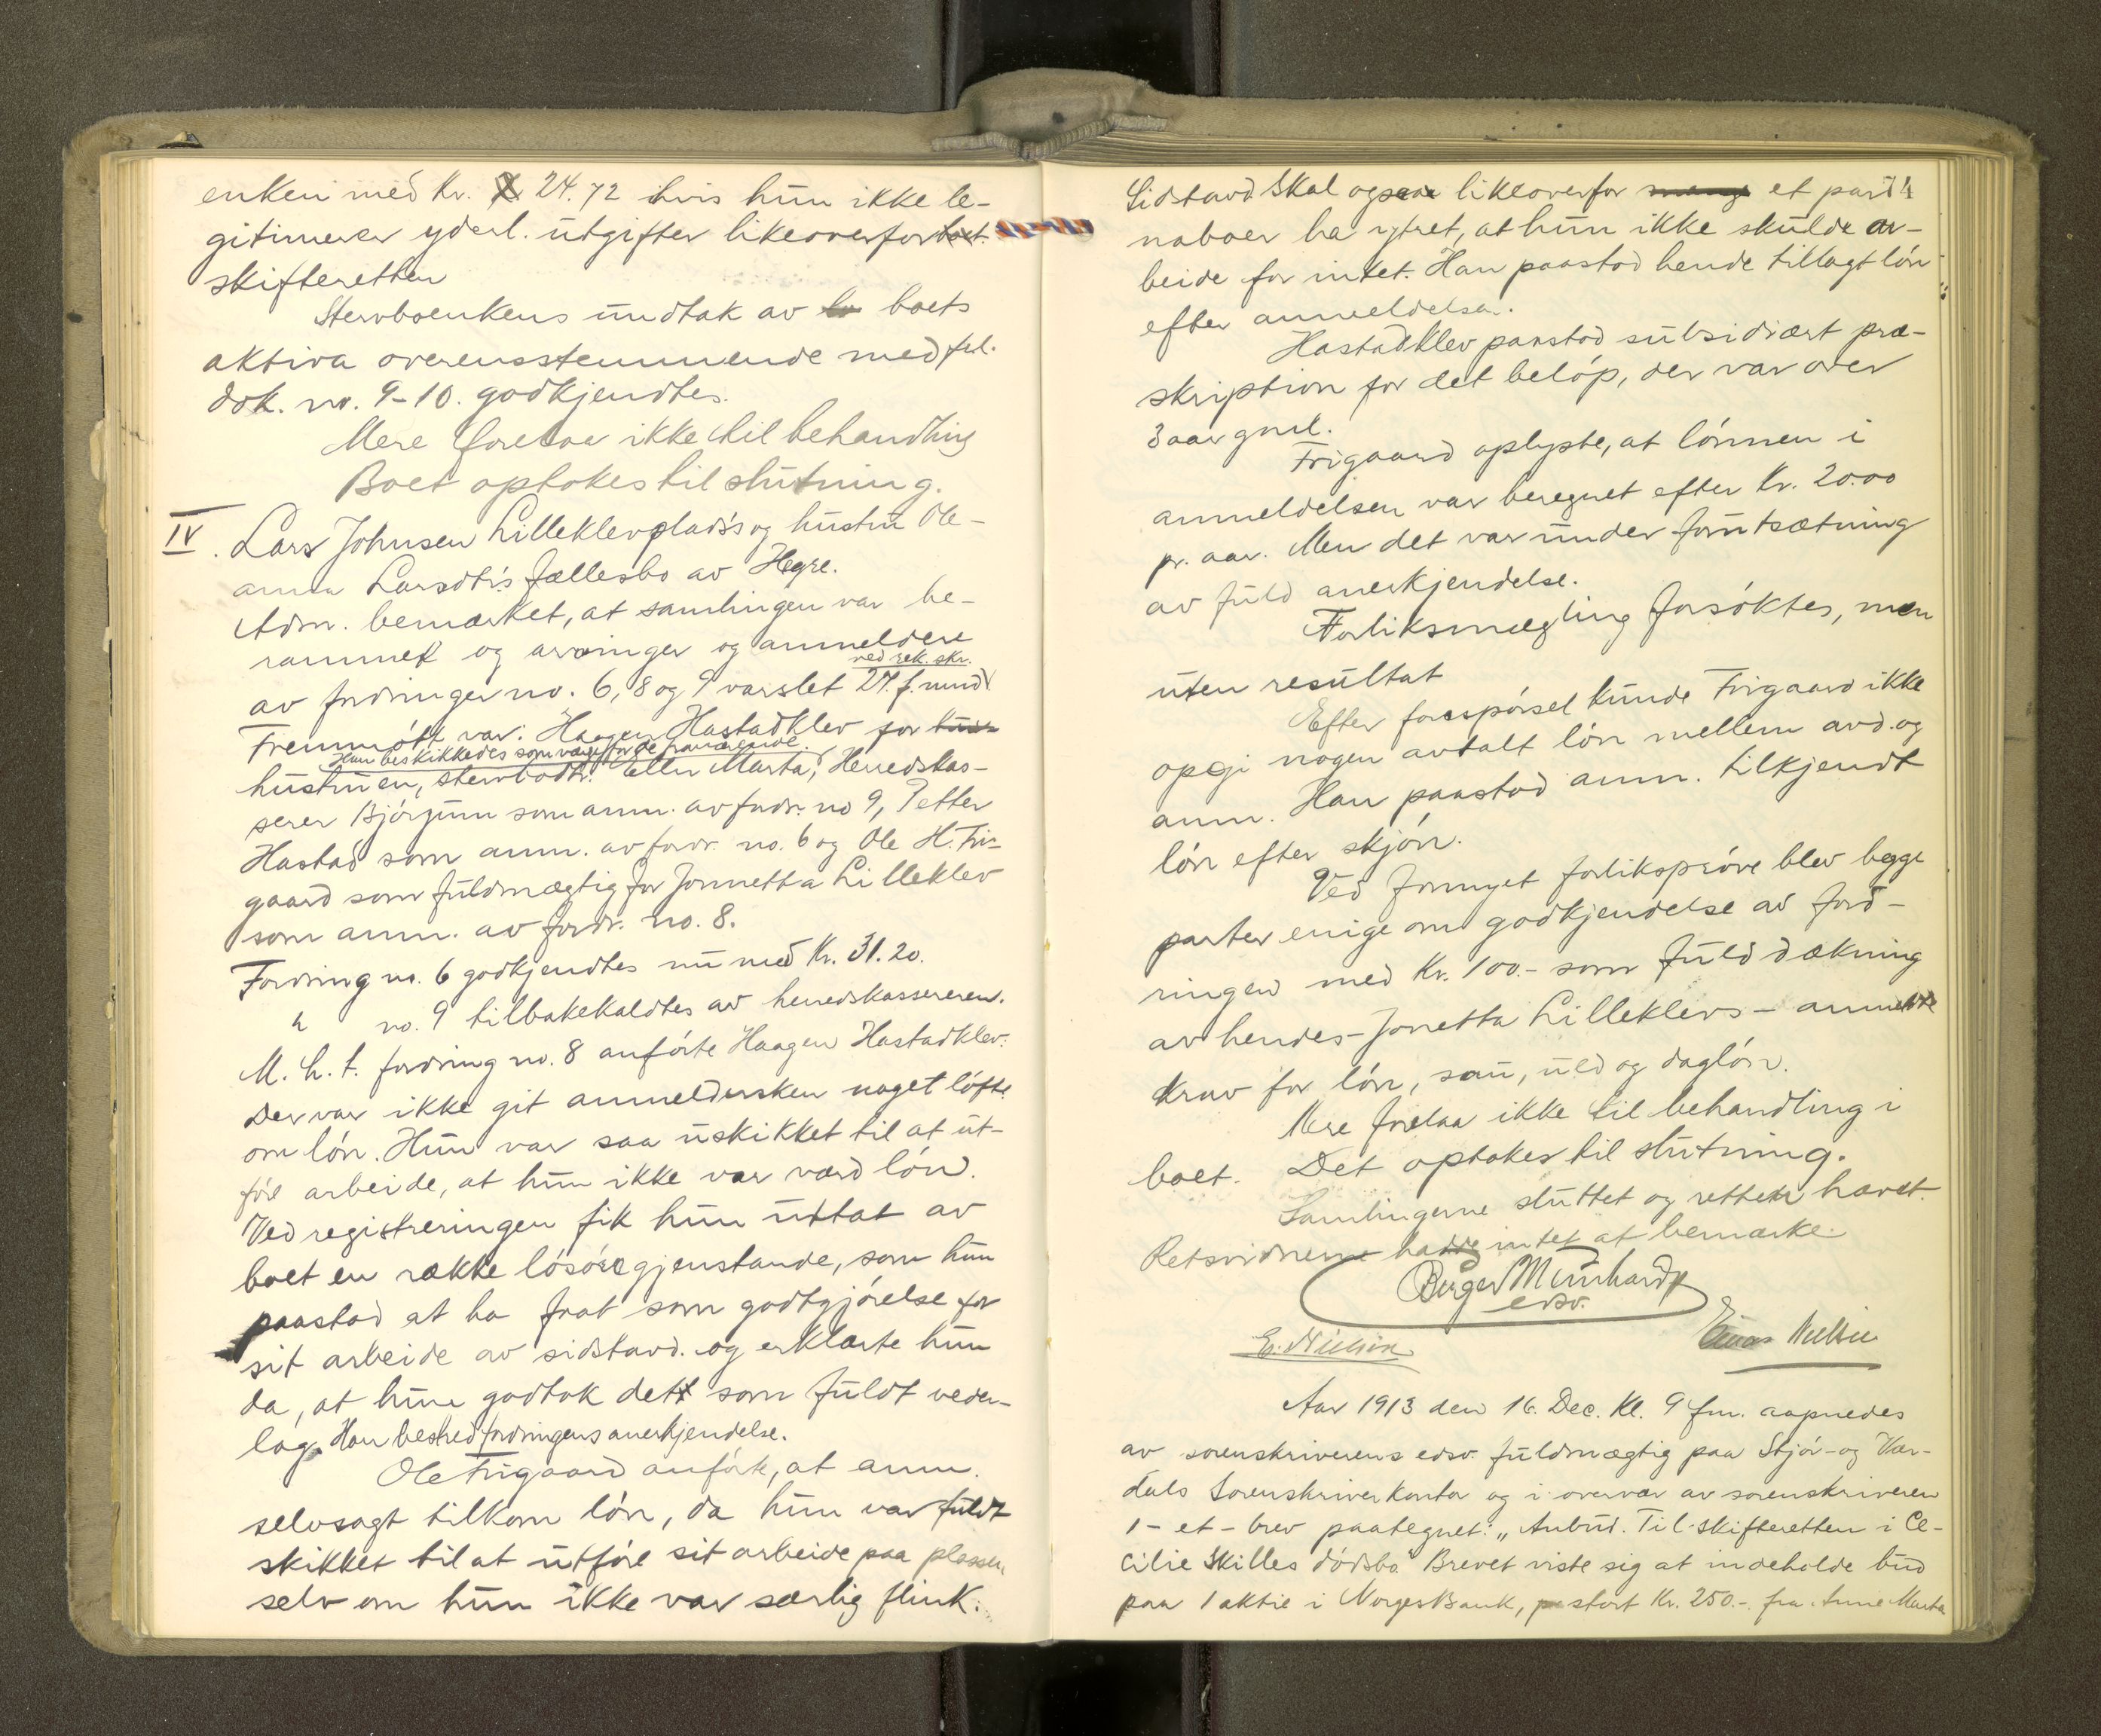 enken med Kr. 24.72 hvis hun ikke le-
gitimerer yderl. utgifter likeoverfor boet.
skifteretten
Stervboenkens undtak av bo boets
aktiva overensstemmende med frl.
dok. no. 9-10. godkjendtes.
Mere forelaa ikke til behandling
Boet optokes til slutning.
IV. Lars Johnsen Lilleklevplads's og hustru Ole-
anna Larsdtr's fællesbo av Hegre.
Adm. bemærket, at samlingen var be-
rammet og arvinger og anmeldere
ved rek. skr.
av fordringer no. 6, 8 og 9 varslet 27. f. mnd.
Fremmøtt var: Haagen Hastadklev for
Han beskikkedes som værge for de fraværende.
hustruen, stervbodtr. Ellen Marta, Herredskas-
serer Bjørgum som anm. av fordr. no 9, Petter
Hastad som anm. av fordr. no. 6 og Ole H. Fri-
gaard som fuldmægtig for Jonnetta Lilleklev
som anm. av fordr. no. 8.
Fordring no. 6 godkjendtes nu med Kr. 31.20.
" no. 9 tilbakekaldtes av herredskassereren.
M. h. t. fordring no. 8 anførte Haagen Hastadklev:
Der var ikke git anmeldersken noget løfte
om løn. Hun var saa uskikket til at ut-
føre arbeide, at hun ikke var værd løn.
Ved registreringen fik hun uttat av
boet en række løsøregjenstande, som hun
paastod at ha faat som godtgjørelse for
sit arbeide av sidstavd. og erklærte hun
da, at hun godtok dett som fuldt veder-
lag. Han bestred fordringens anerkjendelse.
Ole Frigaard anførte, at anm.
selvsagt tilkom løn, da hun var fuldt
skikket til at utføre sit arbeide paa plassen,
selv om hun ikke var særlig flink.
Sidstavd skal ogsaa likeoverfor et par
naboer ha ytret, at hun ikke skulde ar-
beide for intet. Han paastod hende tillagt løn
efter anmeldelsen.
Hastadklev paastod subsidiært præ-
skription for det beløp, der var over
3 aar gml.
Frigaard oplyste, at lønnen i
anmeldelsen var beregnet efter Kr. 20.00
pr. aar. Men det var under forutsætning
av fuld anerkjendelse.
Forliksmægling forsøktes, men
uten resultat
Efter forespørsel kunde Frigaard ikke
opgi nogen avtalt løn mellem avd. og
anm. Han paastod anm. tilkjendt
løn efter skjøn.
Ved fornyet forliksprøve blev begge
parter enige om godkjendelse av ford-
ringen med Kr. 100.- som fuld dækning
av hendes - Jonetta Lilleklevs - anmeldte
krav for løn, sau, uld og dagløn.
Mere forelaa ikke til behandling i
boet. Det optokes til slutning.
Samlingerne sluttet og retten hævet.
Retsvidnerne hadde intet at bemærke.
Birger Meinhardt
edsv.
E. Nielsen Einar Nielsen
Aar 1913 den 16. Dec. Kl. 9 fm. aapnedes
av sorenskriverens edsv. fuldmægtig paa Stjør- og Vær-
dals Sorenskriverkontor og i overvær av sorenskriveren
1 - et - brev paategnet: „Anbud. Til Skifteretten i Ce-
cilie Skilles dødsbo" Brevet viste sig at indeholde bud
paa 1 aktie i Norges Bank, stort Kr. 250.-. fra Anne Marta